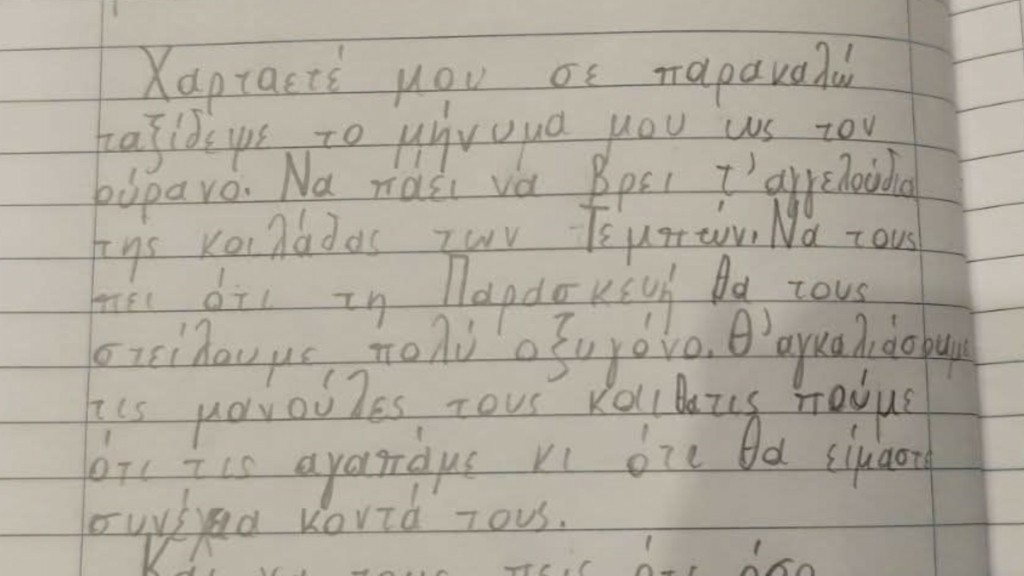 Χαρταετέ μου σε παρακαλώ
ταξίδεψε το μήνυμα μου ως τον
ούρανο. Να πάει να βρει τ' αγγελούδια
της κοιλάδας των Τεμπών. Να τους
πει ότι τη Παρασκευή θα τους
στείλουμε πολύ οξυγόνο. Θ' αγκαλιάσουμε
τις μανούλες τους και θα τις πούμε
ότι τις αγαπάμε κι ότι θα είμαστε
συνέχεια κοντά τους.